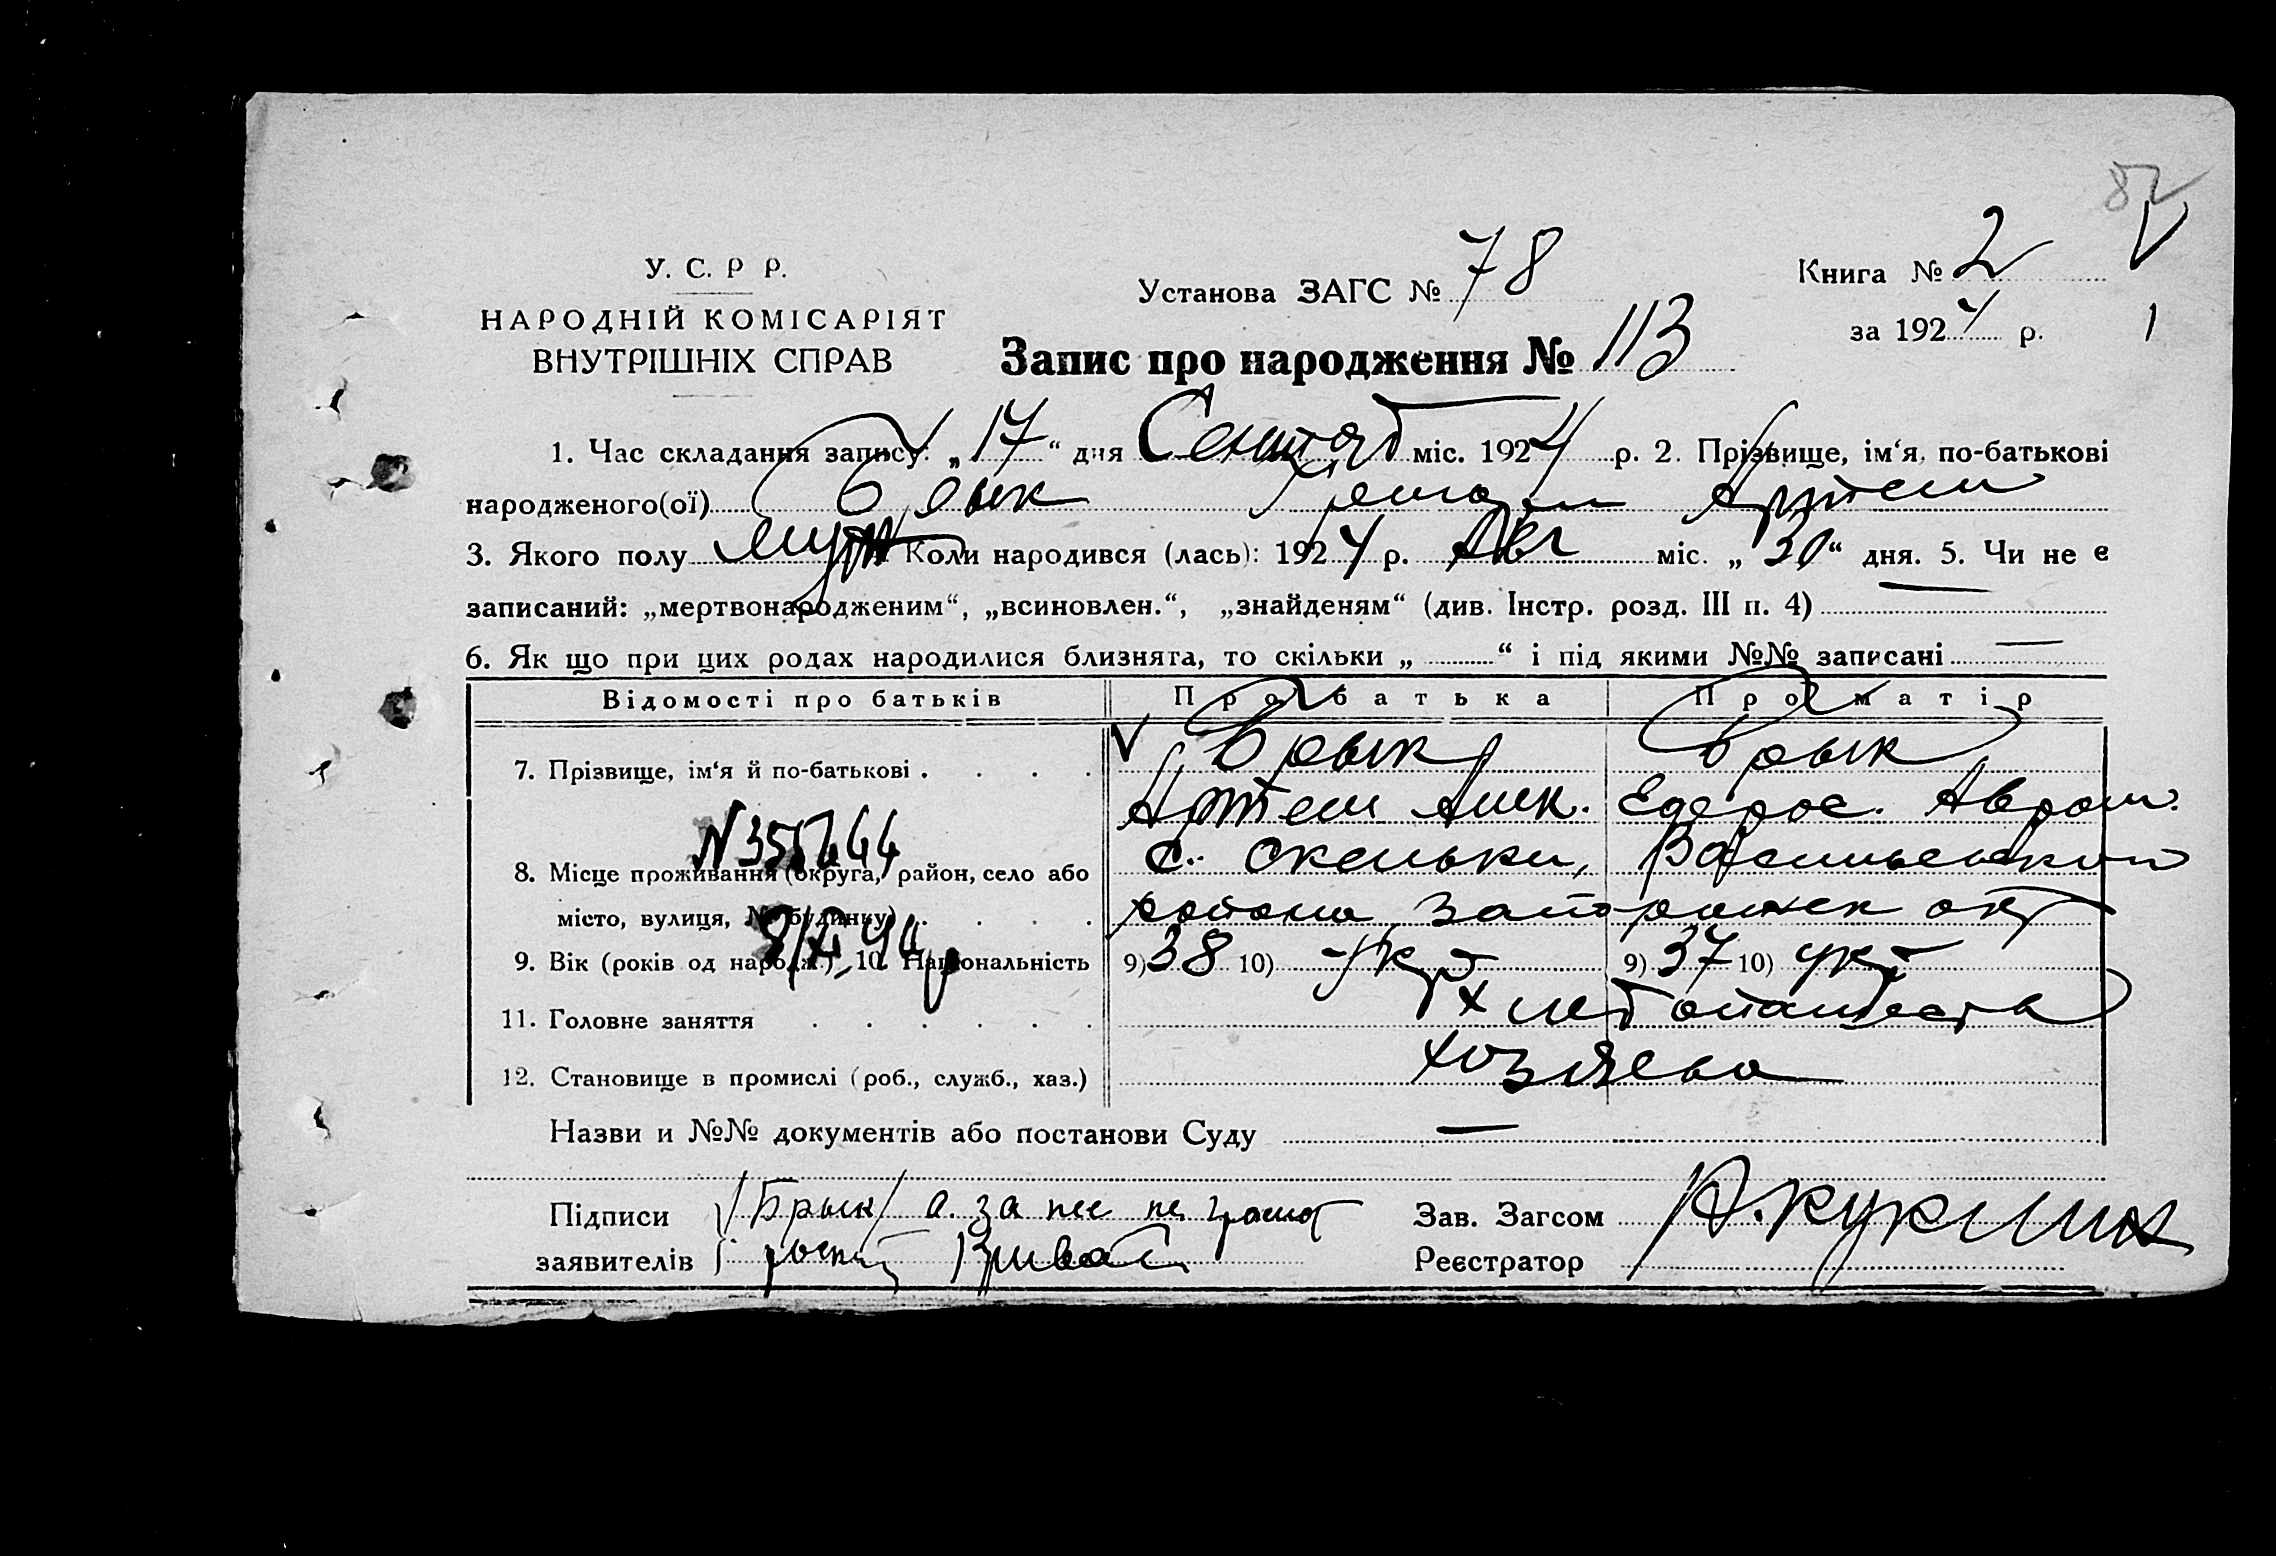 82
У. С. Р Р.
НАРОДНІЙ КОМІСАРІЯТ
ВНУТРІШНІХ СПРАВ
Установа ЗАГС № 78
Книга № 2
за 1924 р.
1
Запис про народження № 113
1. Час складання запису: „17“ дня Сентяб міс. 1924 р. 2. Прізвище, ім‘я, по-батькові
народженого(ої) Брык Артем
3. Якого полу муж Коли народився (лась): 1924 р. Авг міс. „30“ дня. 5. Чи не є
записаний: „мертвонародженим“, „всиновлен.“, „знайденям“ (див. Інстр. розд. III п. 4) —
6. Як що при цих родах народилися близнята, то скільки „ “ і під якими №№ записані —
Відомості про батьків Про батька Про матір
7. Прізвище, ім‘я й по-батькові . . . . Брык Брык
Артем Алек. Едерос. Авром.
8. Місце проживання (округа, район, село або с. Скельки, Васильевского
місто, вулиця, № будинку) . . . . района Запорожск окр
9. Вік (років од народж.) 10. Національність 9) 38 10) укр 9) 37 10) укр
11. Головне заняття . . . . . . хлебопашеств
12. Становище в промислі (роб., служб., хаз.) хозяева
Назви и №№ документів або постанови Суду —
Підписи /Брык/ а за нее не грамот
заявителів
Зав. Загсом
Реєстратор